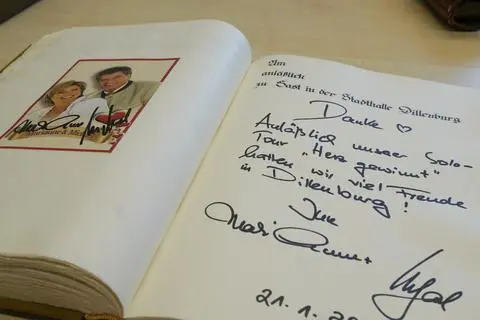 Marianne & Mi
Am
anläßlich
zu Gast in der Stadthalle Dillenburg
Danke ♡
Anläßlich unser Solo-
Tour „Herz gewinnt"
hatten wir viel Freude
in Dillenburg!
Eure
Marianne +
Michael
21.1.20